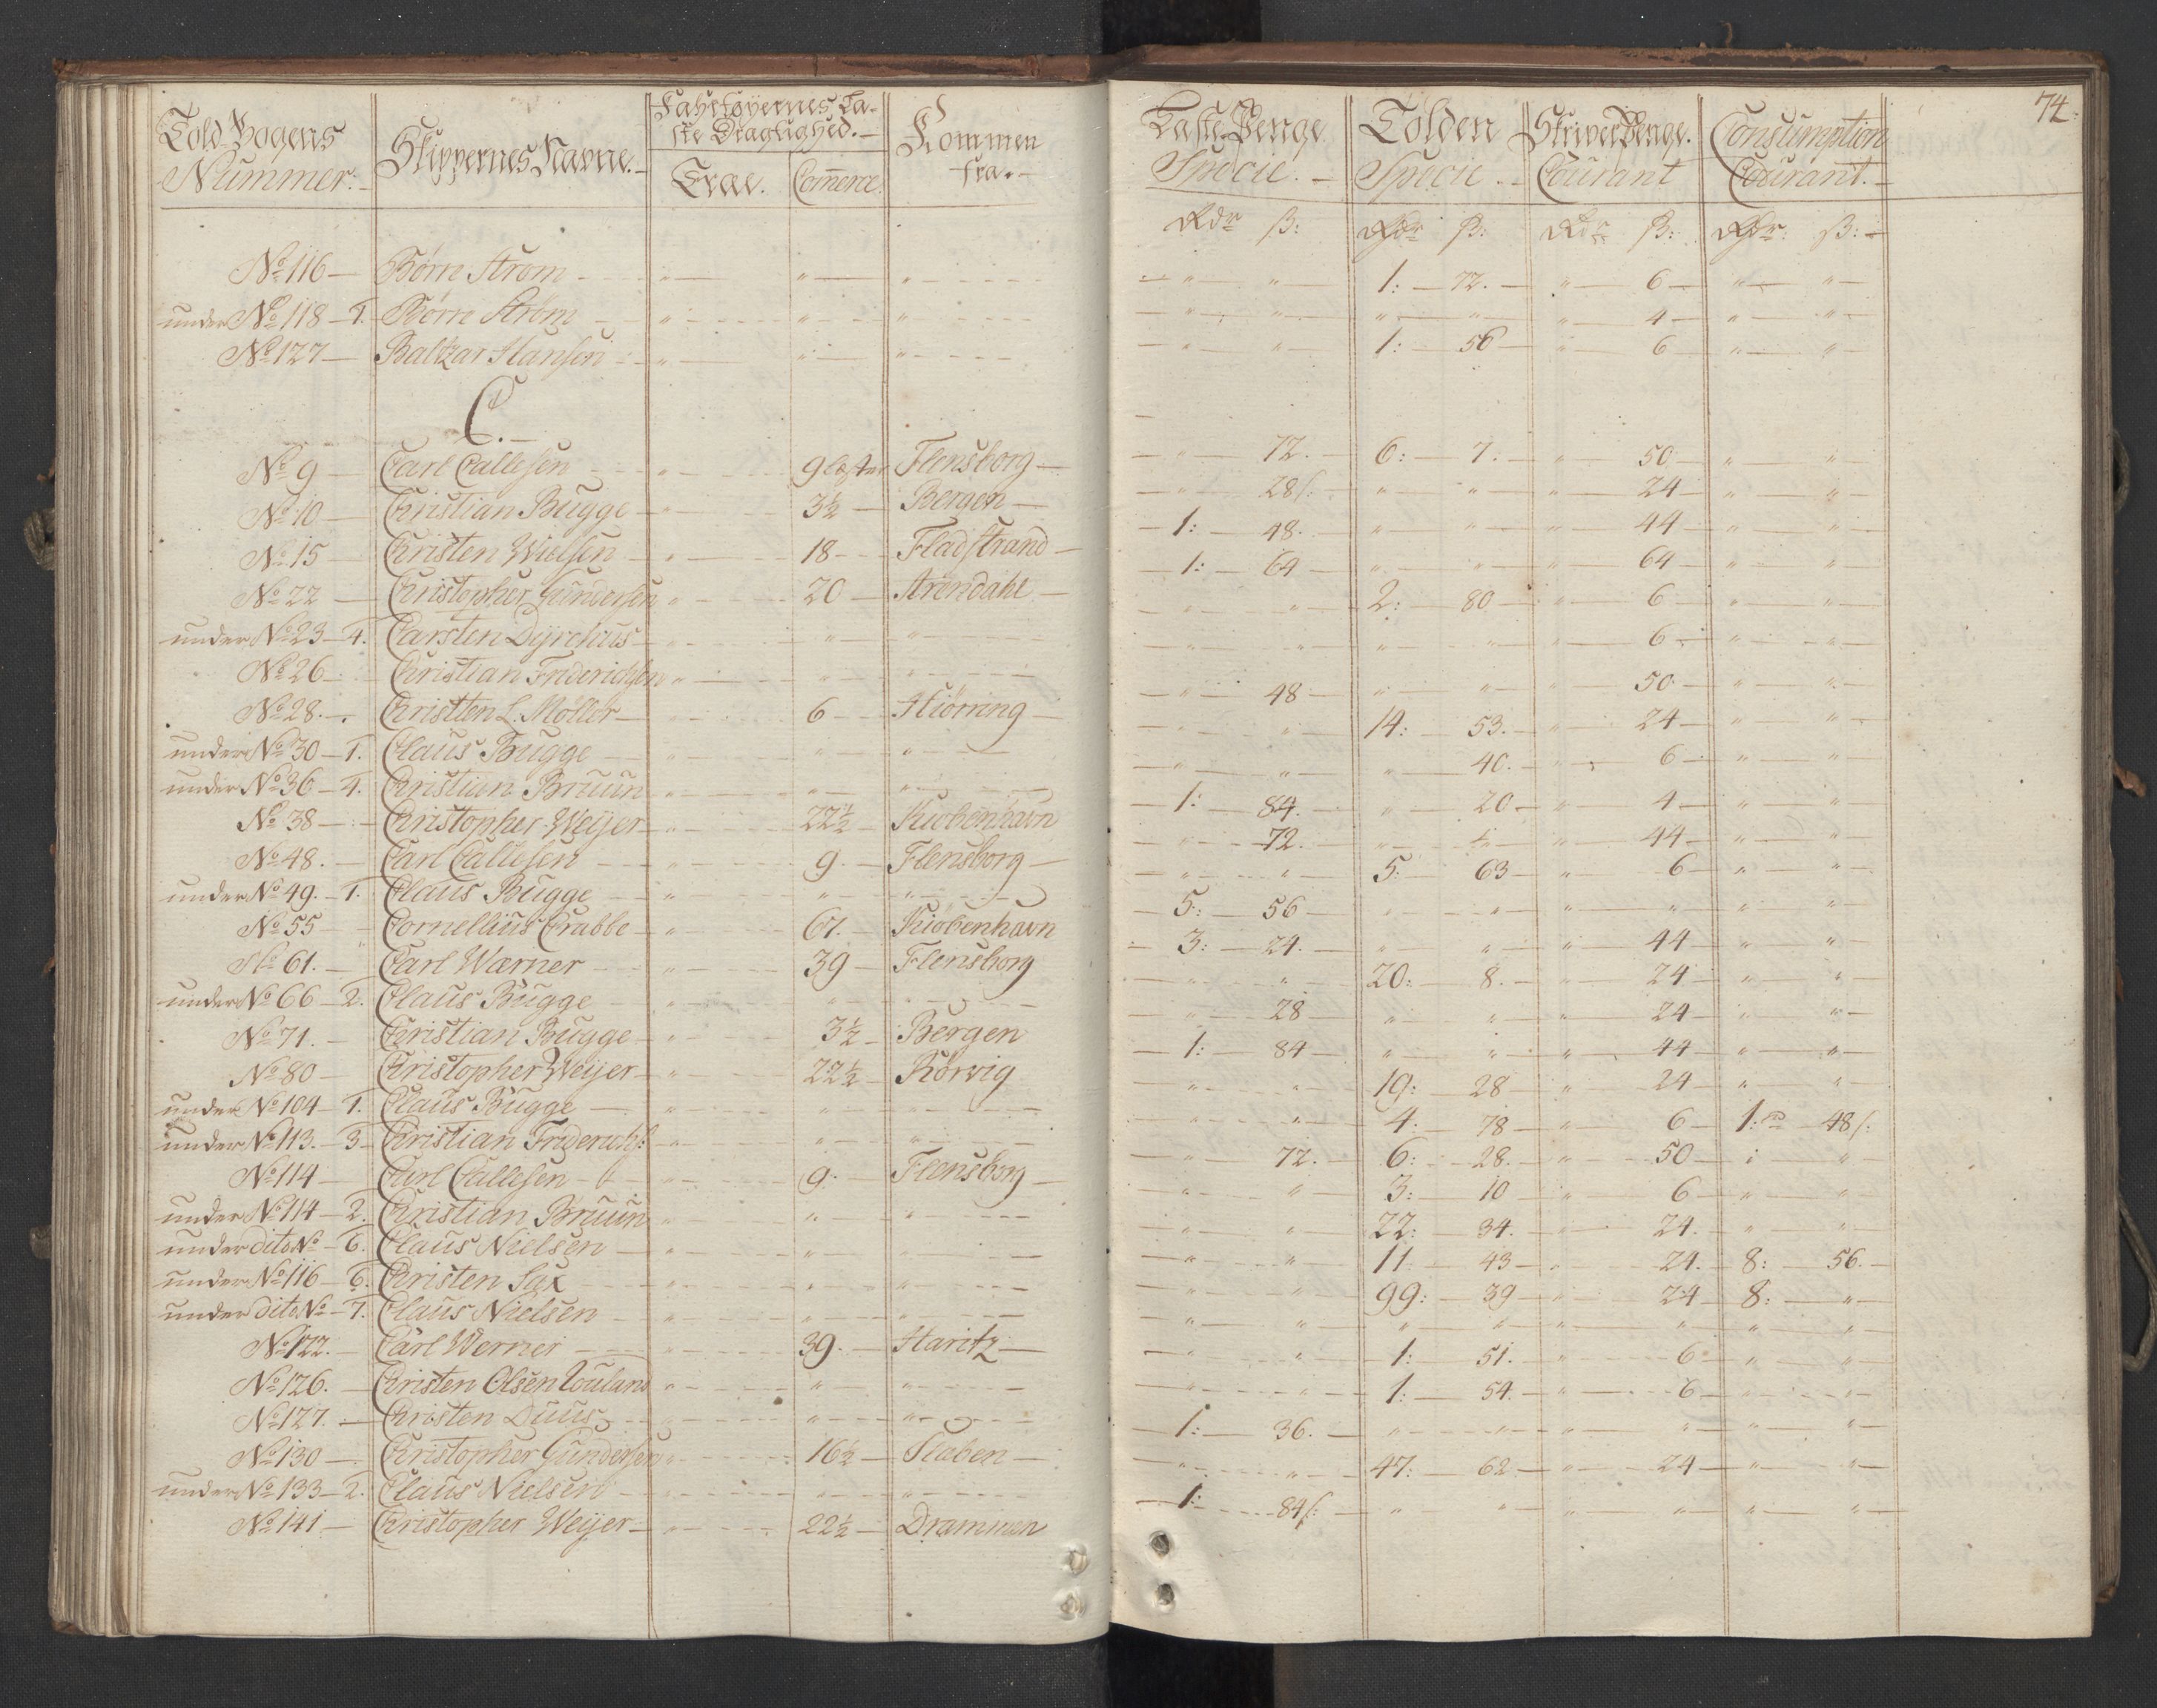 Told Bogens Nummer. Skippernes Navne. Fahrtøyernes Læ- Kommen
ste Drægtighed. fra.
Træe. Comerce.
No 116 — Børre Strøm " " "
under No 118 — 1. Børre Strøm " " "
No 127 — Baltzar Hansen " " "
C.
No 9 — Carl Callesen " 9 læster Flensborg
No 10 — Christian Bugge " 3½ Bergen
No 15 — Christen Nielsen " 18 Fladstrand
No 22 — Christopher Gundersen " 20 Arendahl
under No 23 — 4. Carsten Dyrehuus " " "
No 26 — Christian Friderichsen " " "
No 28. — Christen L. Møller " 6 Hiørring
under No 30 — 1. Claus Bugge " " "
under No 36 — 4. Christian Bruun " " "
No 38 — Christopher Weijer " 22½ Kiøbenhavn
No 48. — Carl Callesen " 9. Flensborg
under No 49. — 1. Claus Bugge " " "
No 55 — Cornellius Crabbe " 67. Kiøbenhavn
No 61. — Carl Wærner " 39 Flensborg
under No 66 — 2. Claus Bugge " " "
No 71. — Christian Bugge " 3½ Bergen
No 80 — Christopher Weijer " 22½ Rørvig
under No 104 — 1. Claus Bugge " " "
under No 113. — 3 Christian Friderichs: " " "
No 114 — Carl Callesen " 9. Flensborg
under No 114 — 2. Christian Bruun " " "
under dito No — 6. Claus Nielsen " " "
under No 116 — 6. Christen Sax " " "
under dito No — 7. Claus Nielsen " " "
No 122. — Carl Werner " 39. Haritz
No 126. — Christen Olsen " " "
No 127. — Christen Duus " " "
No 130 — Christopher Gundersen " 16½ Staben
under No 133 — 2. Claus Nielsen " " "
No 141 — Christopher Weijer " 22½ Drammen
74.
Læste Penge Tolden Skriver Penge. Consumption
Specie. Specie. Courant Courant.
Rdr ß: Rdr ß: Rdr ß: Rdr: ß:
" " 1: 72. " 6 " "
" " " " " 4 " "
" " 1: 56 " 6 " "
" 72. 6: 7. " 50 " "
" 28ß: " " " 24 " "
1: 48. " " " 44 " "
1: 64 " " " 64 " "
" " 2: 80 " 6 " "
" " " " " 6 " "
" 48 " " " 50 " "
" " 14: 53. " 24 " "
" " " 40. " 6 " "
1: 84. " 20 " 4 " "
" 72. " " " 44 " "
" " 5: 63 " 6 " "
5: 56 " " " " " "
3: 24. " " " 44 " "
" " 20: 8. " 24 " "
" 28 " " " 24 " "
1: 84 " " " 44 " "
" " 19: 28 " 24 " "
" " 4. 78 " 6 1: 48ß:
" 72. 6: 28. " 50 " "
" " 3: 10 " 6 " "
" " 22: 34. " 24. " "
" " 11 43 " 24. 8: 56.
" " 99: 39 " 24 8: "
" " " " " " " "
" " 1: 51. " 6 " "
" " 1: 54. " 6 " "
1: 36. " " " " " "
" " 47: 62 " 24 " "
1: 84ß: " " " " " "